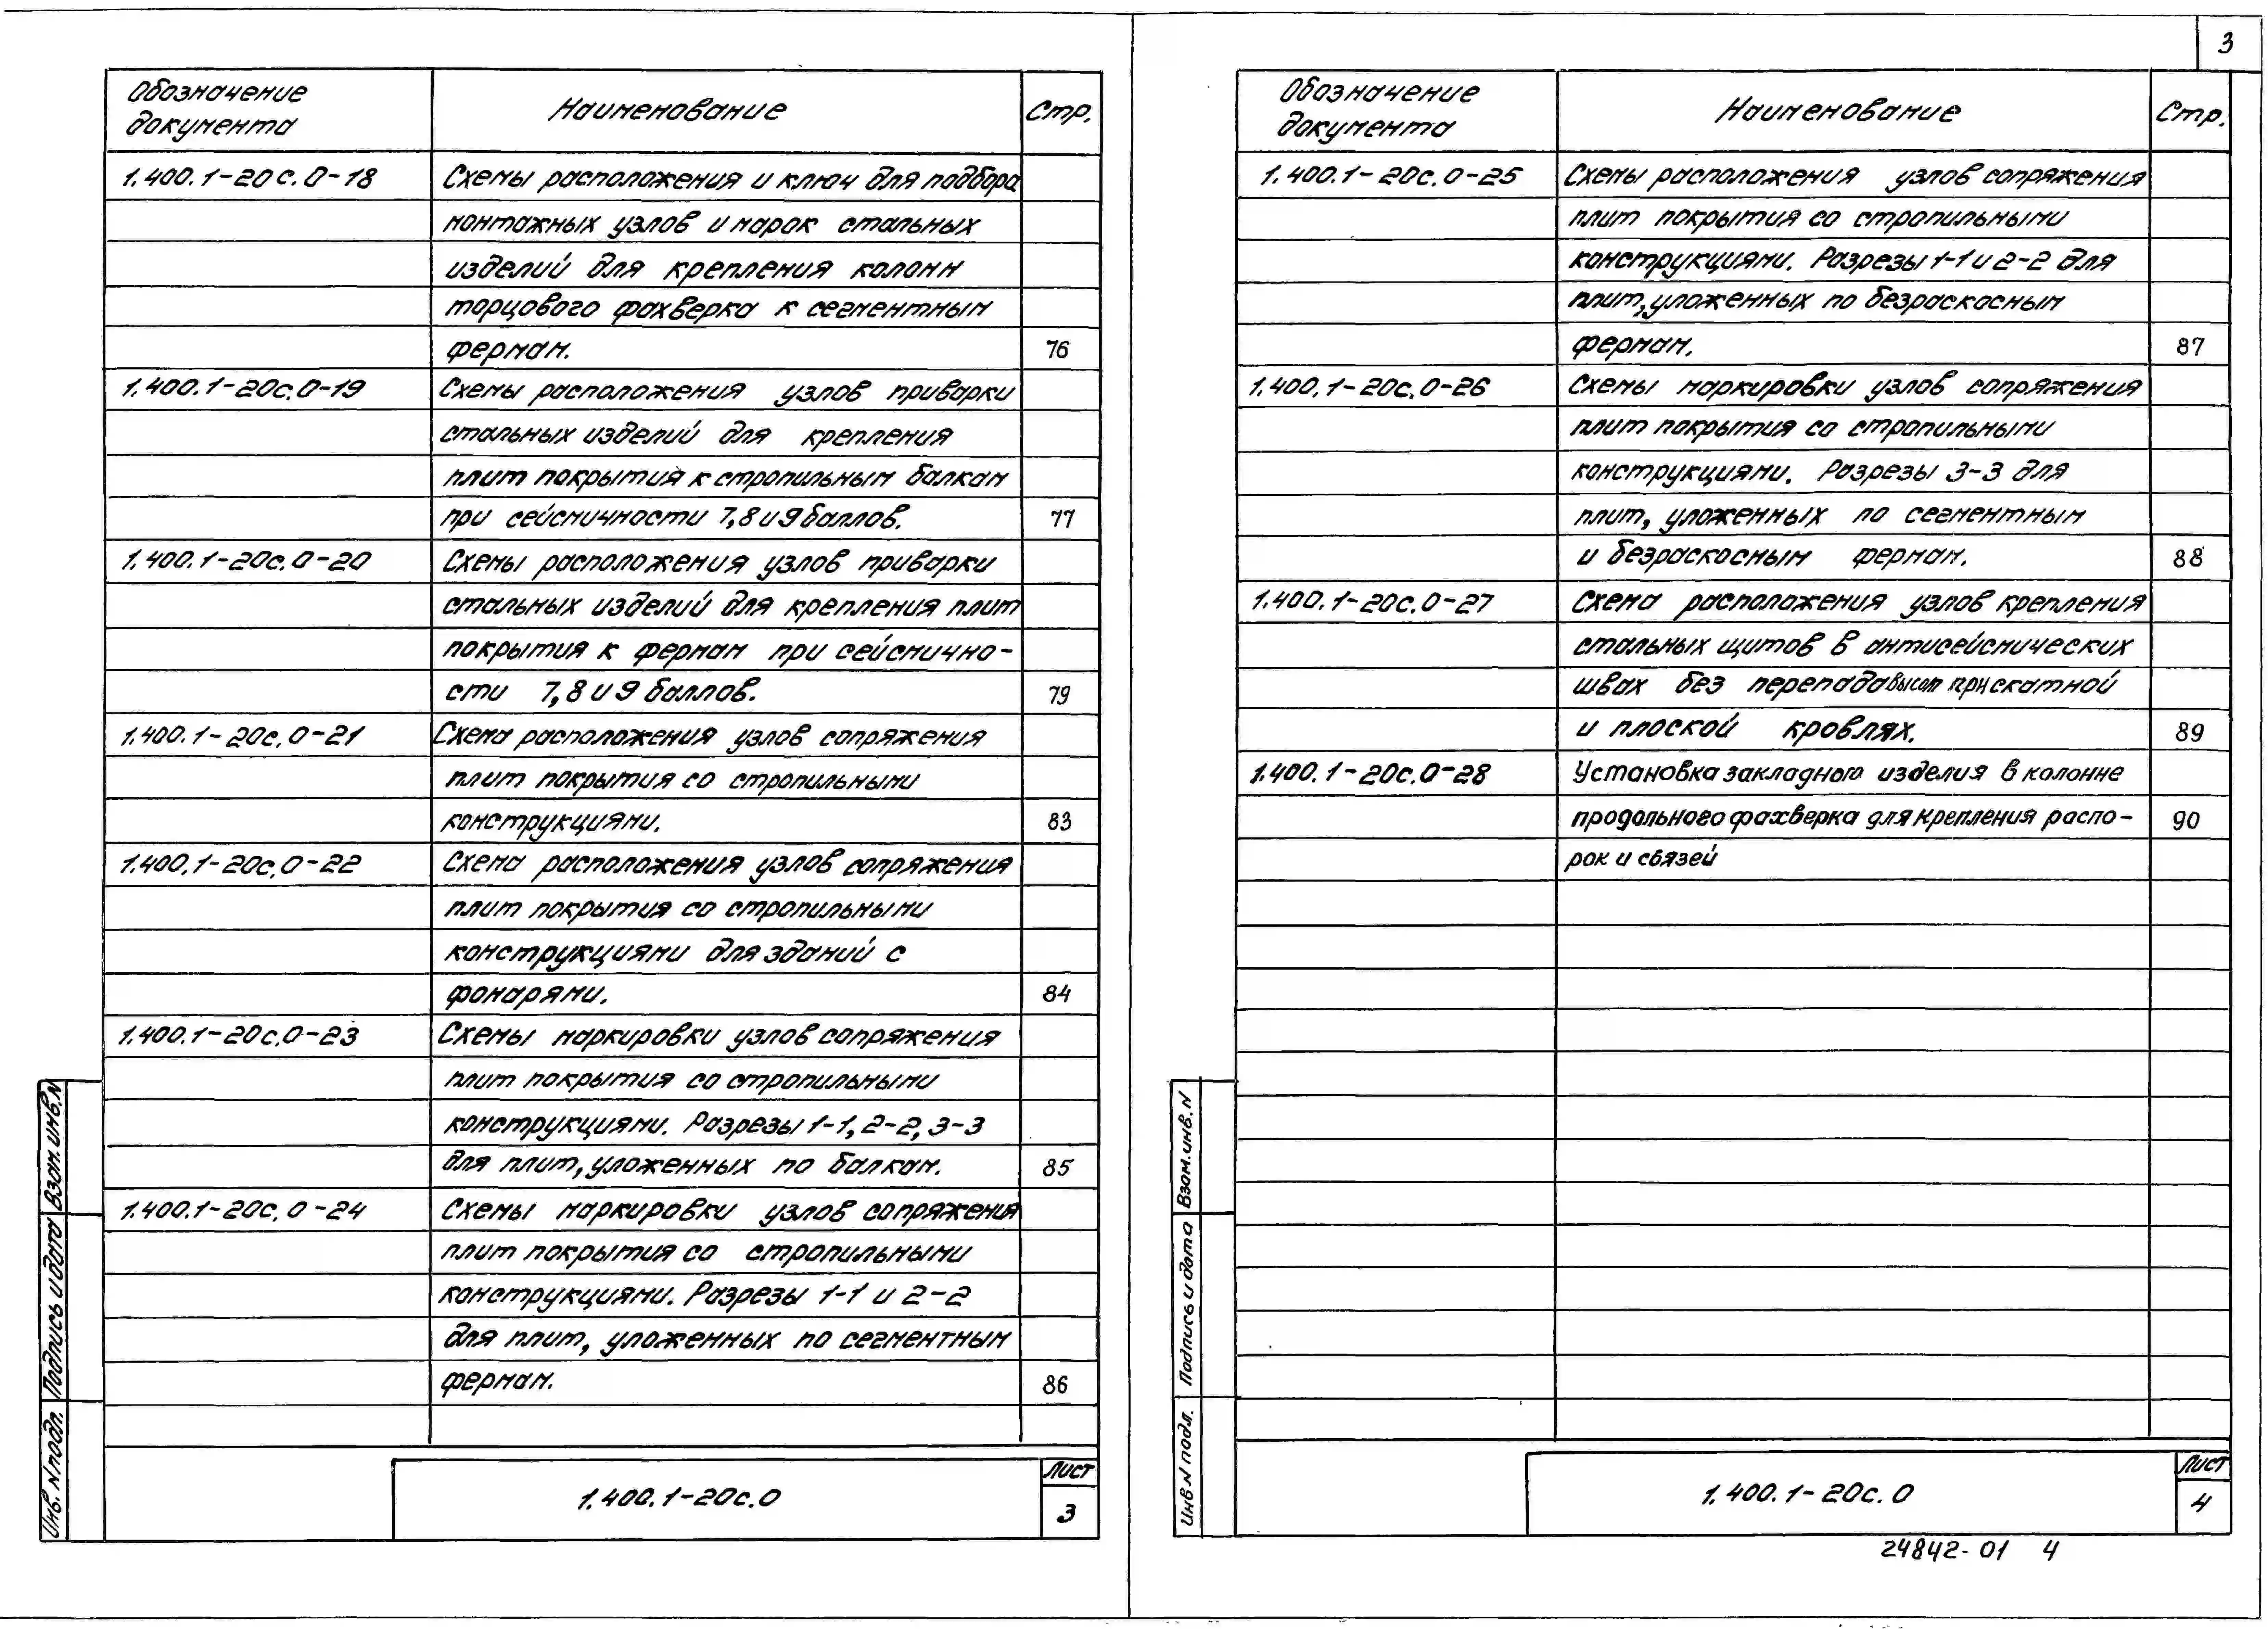 3
Обозначение документа Наименование Стр.
1.400.1-20с.0-18 Схемы расположения и ключ для подбора
монтажных узлов и марок стальных
изделий для крепления колонн
торцового фахверка к сегментным
фермам. 76
1.400.1-20с.0-19 Схемы расположения узлов приварки
стальных изделий для крепления
плит покрытия к стропильным балкам
при сейсмичности 7,8 и 9 баллов. 77
1.400.1-20с.0-20 Схемы расположения узлов приварки
стальных изделий для крепления плит
покрытия к фермам при сейсмично-
сти 7,8 и 9 баллов. 79
1.400.1-20с.0-21 Схема расположения узлов сопряжения
плит покрытия со стропильными
конструкциями. 83
1.400.1-20с.0-22 Схема расположения узлов сопряжения
плит покрытия со стропильными
конструкциями для зданий с
фонарями. 84
1.400.1-20с.0-23 Схемы маркировки узлов сопряжения
плит покрытия со стропильными
конструкциями. Разрезы 1-1, 2-2, 3-3
для плит, уложенных по балкам. 85
1.400.1-20с.0-24 Схемы маркировки узлов сопряжения
плит покрытия со стропильными
конструкциями. Разрезы 1-1 и 2-2
для плит, уложенных по сегментным
фермам. 86
Взам. инв. N
Подпись и дата
Инв. N подл.
1.400.1-20с.0
Лист
3
Обозначение документа Наименование Стр.
1.400.1-20с.0-25 Схемы расположения узлов сопряжения
плит покрытия со стропильными
конструкциями. Разрезы 1-1 и 2-2 для
плит, уложенных по безраскосным
фермам. 87
1.400.1-20с.0-26 Схемы маркировки узлов сопряжения
плит покрытия со стропильными
конструкциями. Разрезы 3-3 для
плит, уложенных по сегментным
и безраскосным фермам. 88
1.400.1-20с.0-27 Схема расположения узлов крепления
стальных щитов в антисейсмических
швах без перепада высот при скатной
и плоской кровлях. 89
1.400.1-20с.0-28 Установка закладного изделия в колонне
продольного фахверка для крепления распо- 90
рок и связей
Взам. инв. N
Подпись и дата
Инв N подл.
1.400.1-20с.0
Лист
4
24842-01 4